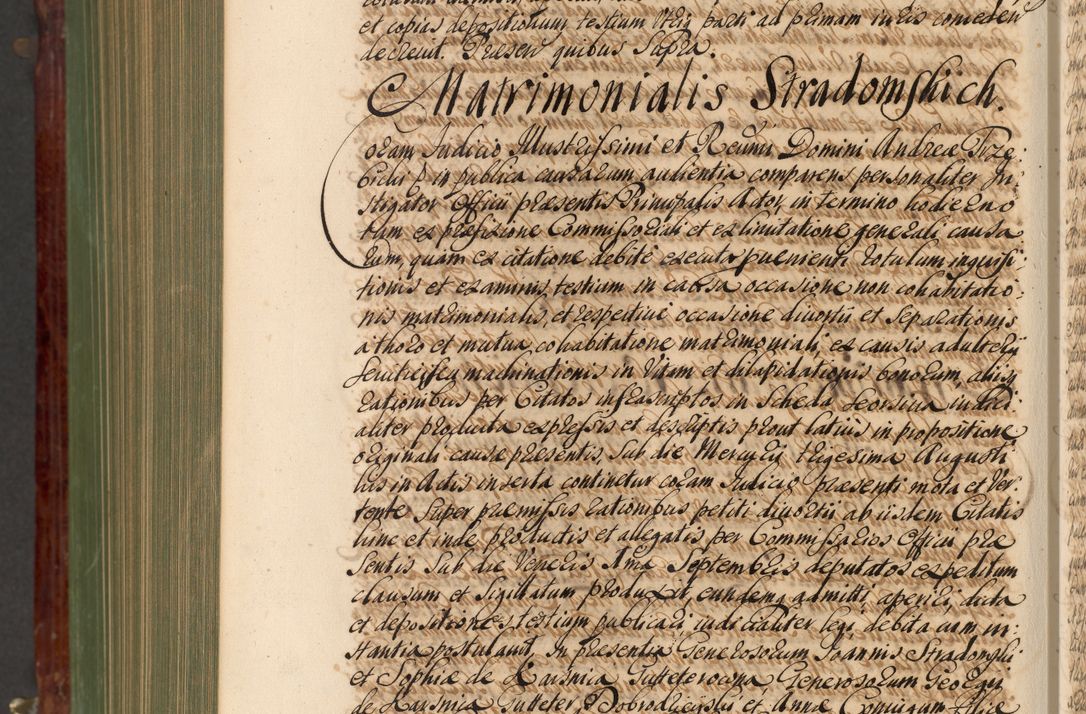 et copias depositionum testium utriq parti ad primam iuris conceden
decrevit. Praesen quibus Supra.
Matrimonialis Stradomskich.
Coram Judicio Illustrissimi et Reumi Domini Andreae Trze
bicki in publica causarum audientia comparens personaliter In
stigator Officii praesentis Principalis Actor, in termino hodierno
tum ex praefixione Commissoriali et ex limitatione generali causa
rum, quam ex citatione debite executa provenienti rotulum inquisi
tionis et examinis testium in causa occasione non cohabitatio
nis matrimonialis, et respective occasione divortii et Separationis
a thoro et mutua cohabitatione matrimoniali, ex causis adulterii
machinationis in vitam et dilapidationis bonorum, aliisq
rationibus per Citatos infrascriptos in Scheda Seorsiva iudici
aliter producta expressis et descriptis prout latius in propositione
originali causae praesentis Sub die Mercurii trigesima Augusti
his in Actis inserta continetur coram Judicio praesenti mota et ver
tente Super praemissis rationibus petiti divortii ab iisdem Citatis
hinc et inde productis et allegatis per Commissarios Officii prae
sentis Sub die Veneris 1ma Septembris deputatos expeditum
clausum et Sigillatum produxit, eundemq admitti, aperiri, dicta
et depositiones testium publicari iudicialiter legi debita cum in
stantia postulavit, In praesentia Generosorum Joannis Stradomski
et Sophiae de Karsnica Gutteterowna, Generosorum Georgii
de Karsnica Gutteter, Dobrodzieyski et Annae Coniugum